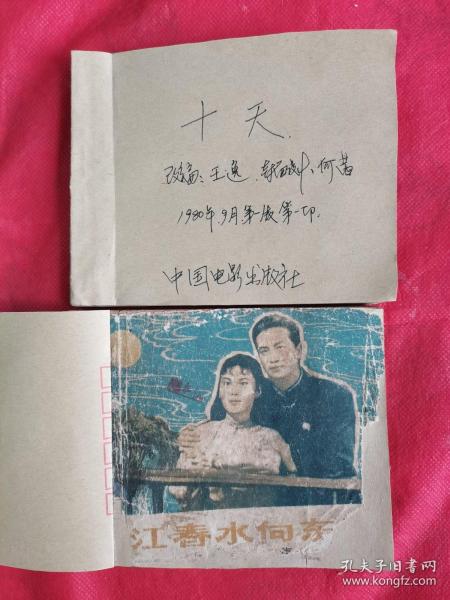 十天.
改编:王逸、
何苦
1980年9月第一版第一印.
中国电影出版社
江春水向东
孔夫子旧书网
www.kongfz.com